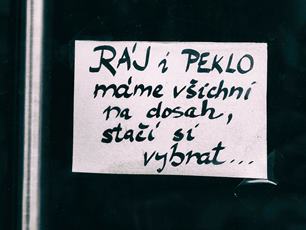 RÁJ i PEKLO
máme všichni
na dosah,
stačí si
vybrat...